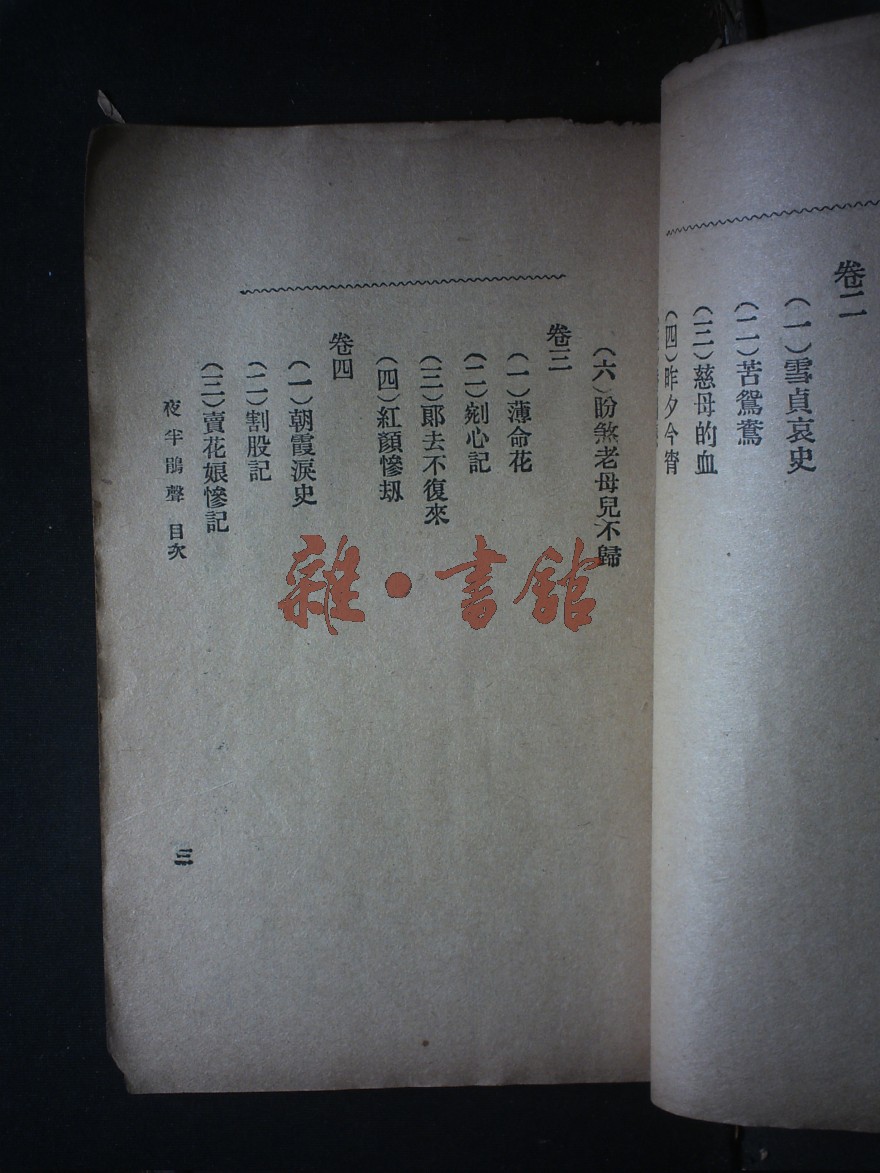 卷二
（一）雪貞哀史
（二）苦鴛鴦
（三）慈母的血
（四）昨夕今宵
（六）盼煞老母兒不歸
卷三
（一）薄命花
（二）剜心記
（三）郎去不復來
（四）紅顏慘刼
卷四
（一）朝霞淚史
（二）割股記
（三）賣花娘慘記
夜半鵑聲 目次
三
雜·書館